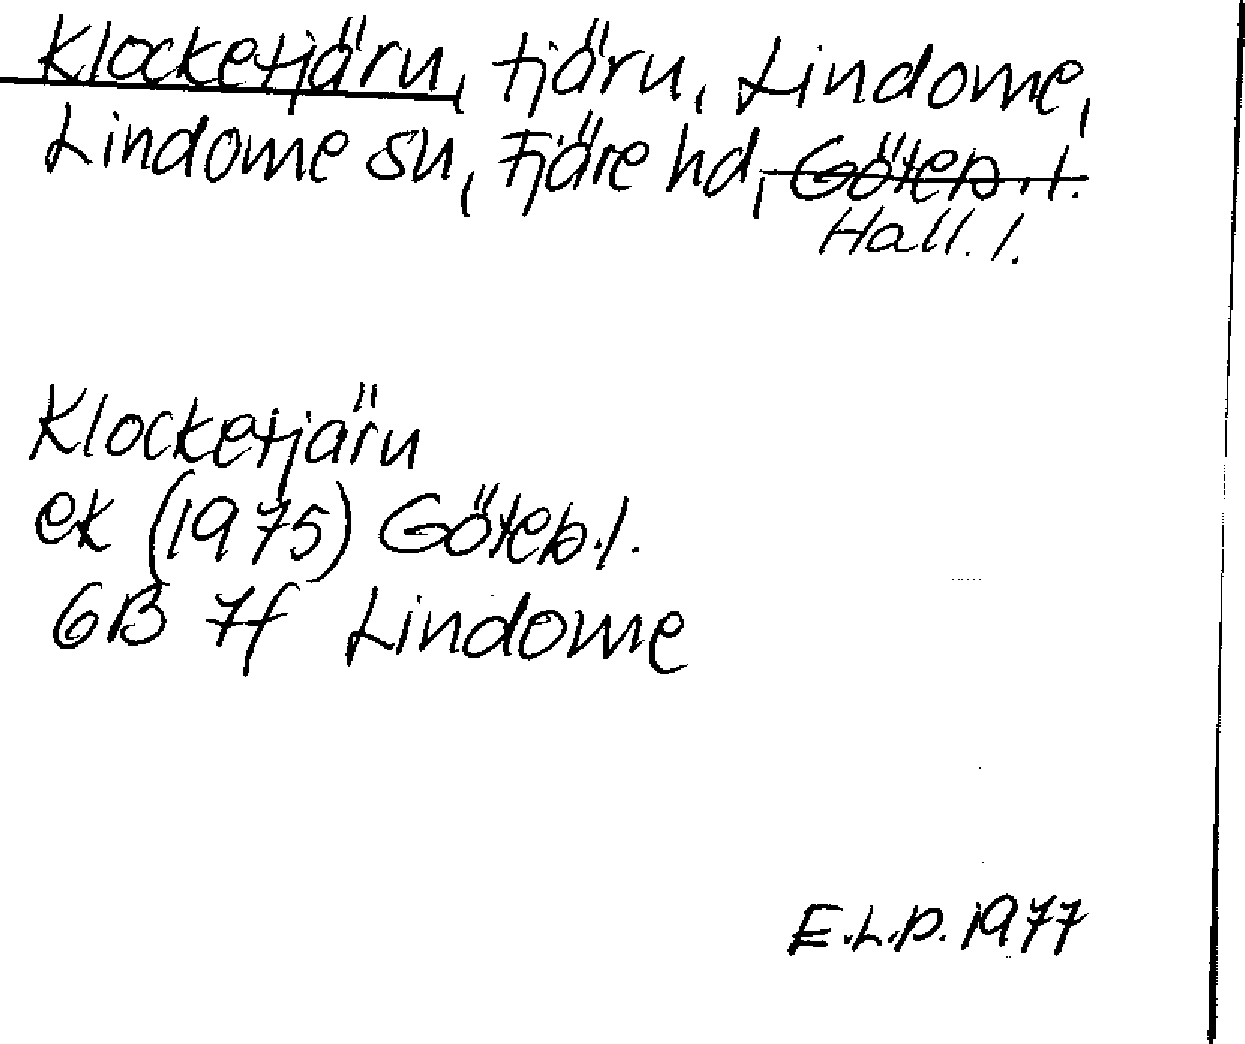 Klocketjärn, tjärn, Lindome,
Lindome sn, Fjäre hd, Göteb. l.
Hall. l.
Klocketjärn
ek (1975) Göteb. l.
6B 7f Lindome
E.L.P. 1977